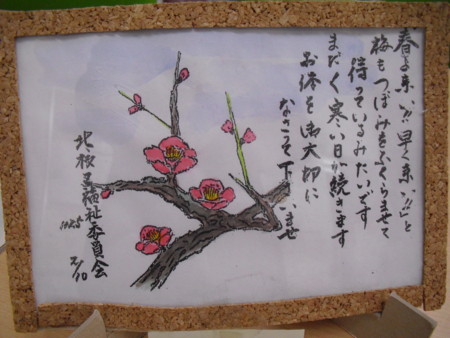 春よ来い!!早く来い!!」と
梅もつぼみをふくらませて
待っているみたいです
まだ〱寒い日が続きます
お体を御大切に
なさって下さいませ
北校区福祉委員会
2/10